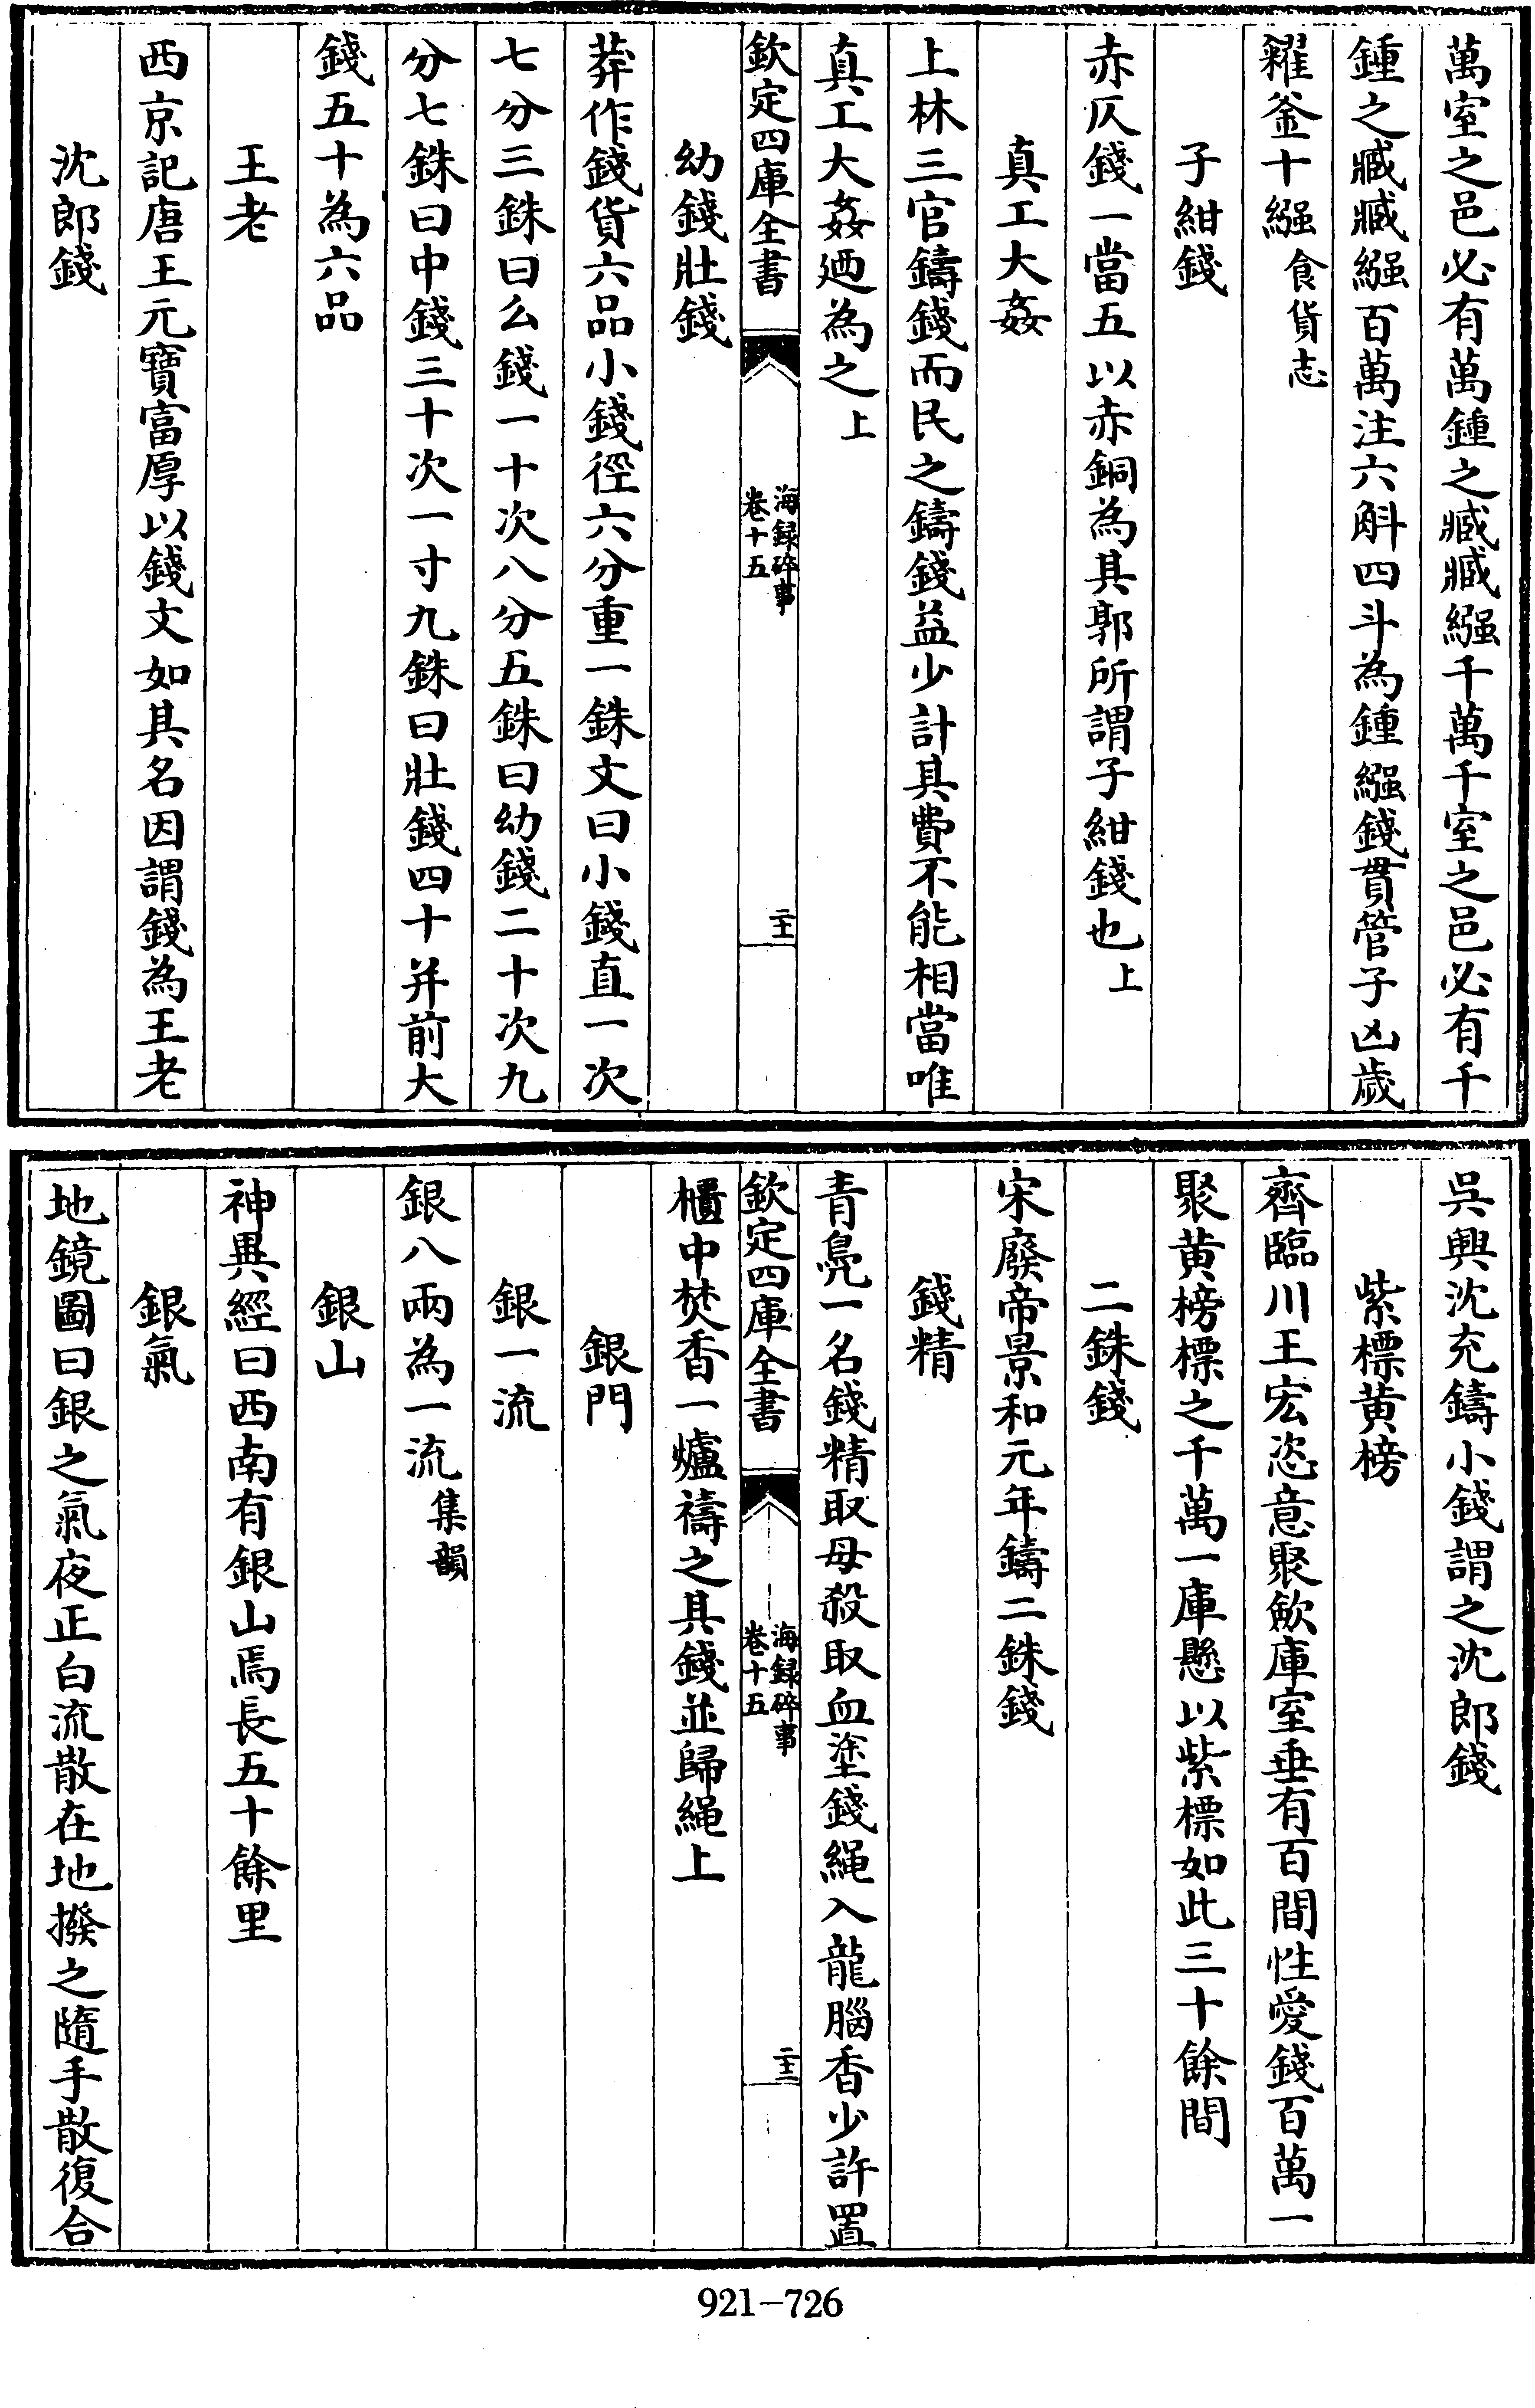 萬室之邑必有萬鍾之臧臧繦千萬千室之邑必有千
鍾之臧臧繦百萬注六斛四斗為鍾繦錢貫管子凶歲
糴釜十繦食貨志
子紺錢
赤仄錢一當五以赤銅為其郭所謂子紺錢也上
真工大姦
上林三官鑄錢而民之鑄錢益少計其費不能相當唯
真工大姦廼為之上
欽定四庫全書
海録碎事
卷十五
二十二
幼錢壯錢
莽作錢貨六品小錢徑六分重一銖文曰小錢直一次
七分三銖曰么錢一十次八分五銖曰幼錢二十次九
分七銖曰中錢三十次一寸九銖曰壯錢四十并前大
錢五十為六品
王老
西京記唐王元寶富厚以錢文如其名因謂錢為王老
沈郎錢
吳興沈充鑄小錢謂之沈郎錢
紫標黄榜
齊臨川王宏恣意聚歛庫室垂有百間性愛錢百萬一
聚黄榜標之千萬一庫懸以紫標如此三十餘間
二銖錢
宋廢帝景和元年鑄二銖錢
錢精
青鳧一名錢精取母殺取血塗錢繩入龍腦香少許置
欽定四庫全書
海録碎事
卷十五
二十三
櫃中焚香一爐禱之其錢並歸繩上
銀門
銀一流
銀八兩為一流集韻
銀山
神異經曰西南有銀山焉長五十餘里
銀氣
地鏡圖曰銀之氣夜正白流散在地撥之隨手散復合
921-726